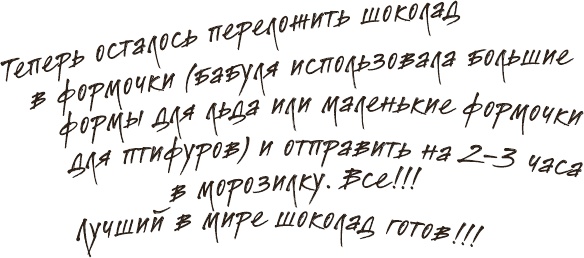 Теперь осталось переложить шоколад
в формочки (бабуля использовала большие
формы для льда или маленькие формочки
для птифуров) и отправить на 2-3 часа
в морозилку. Все!!!
лучший в мире шоколад готов!!!